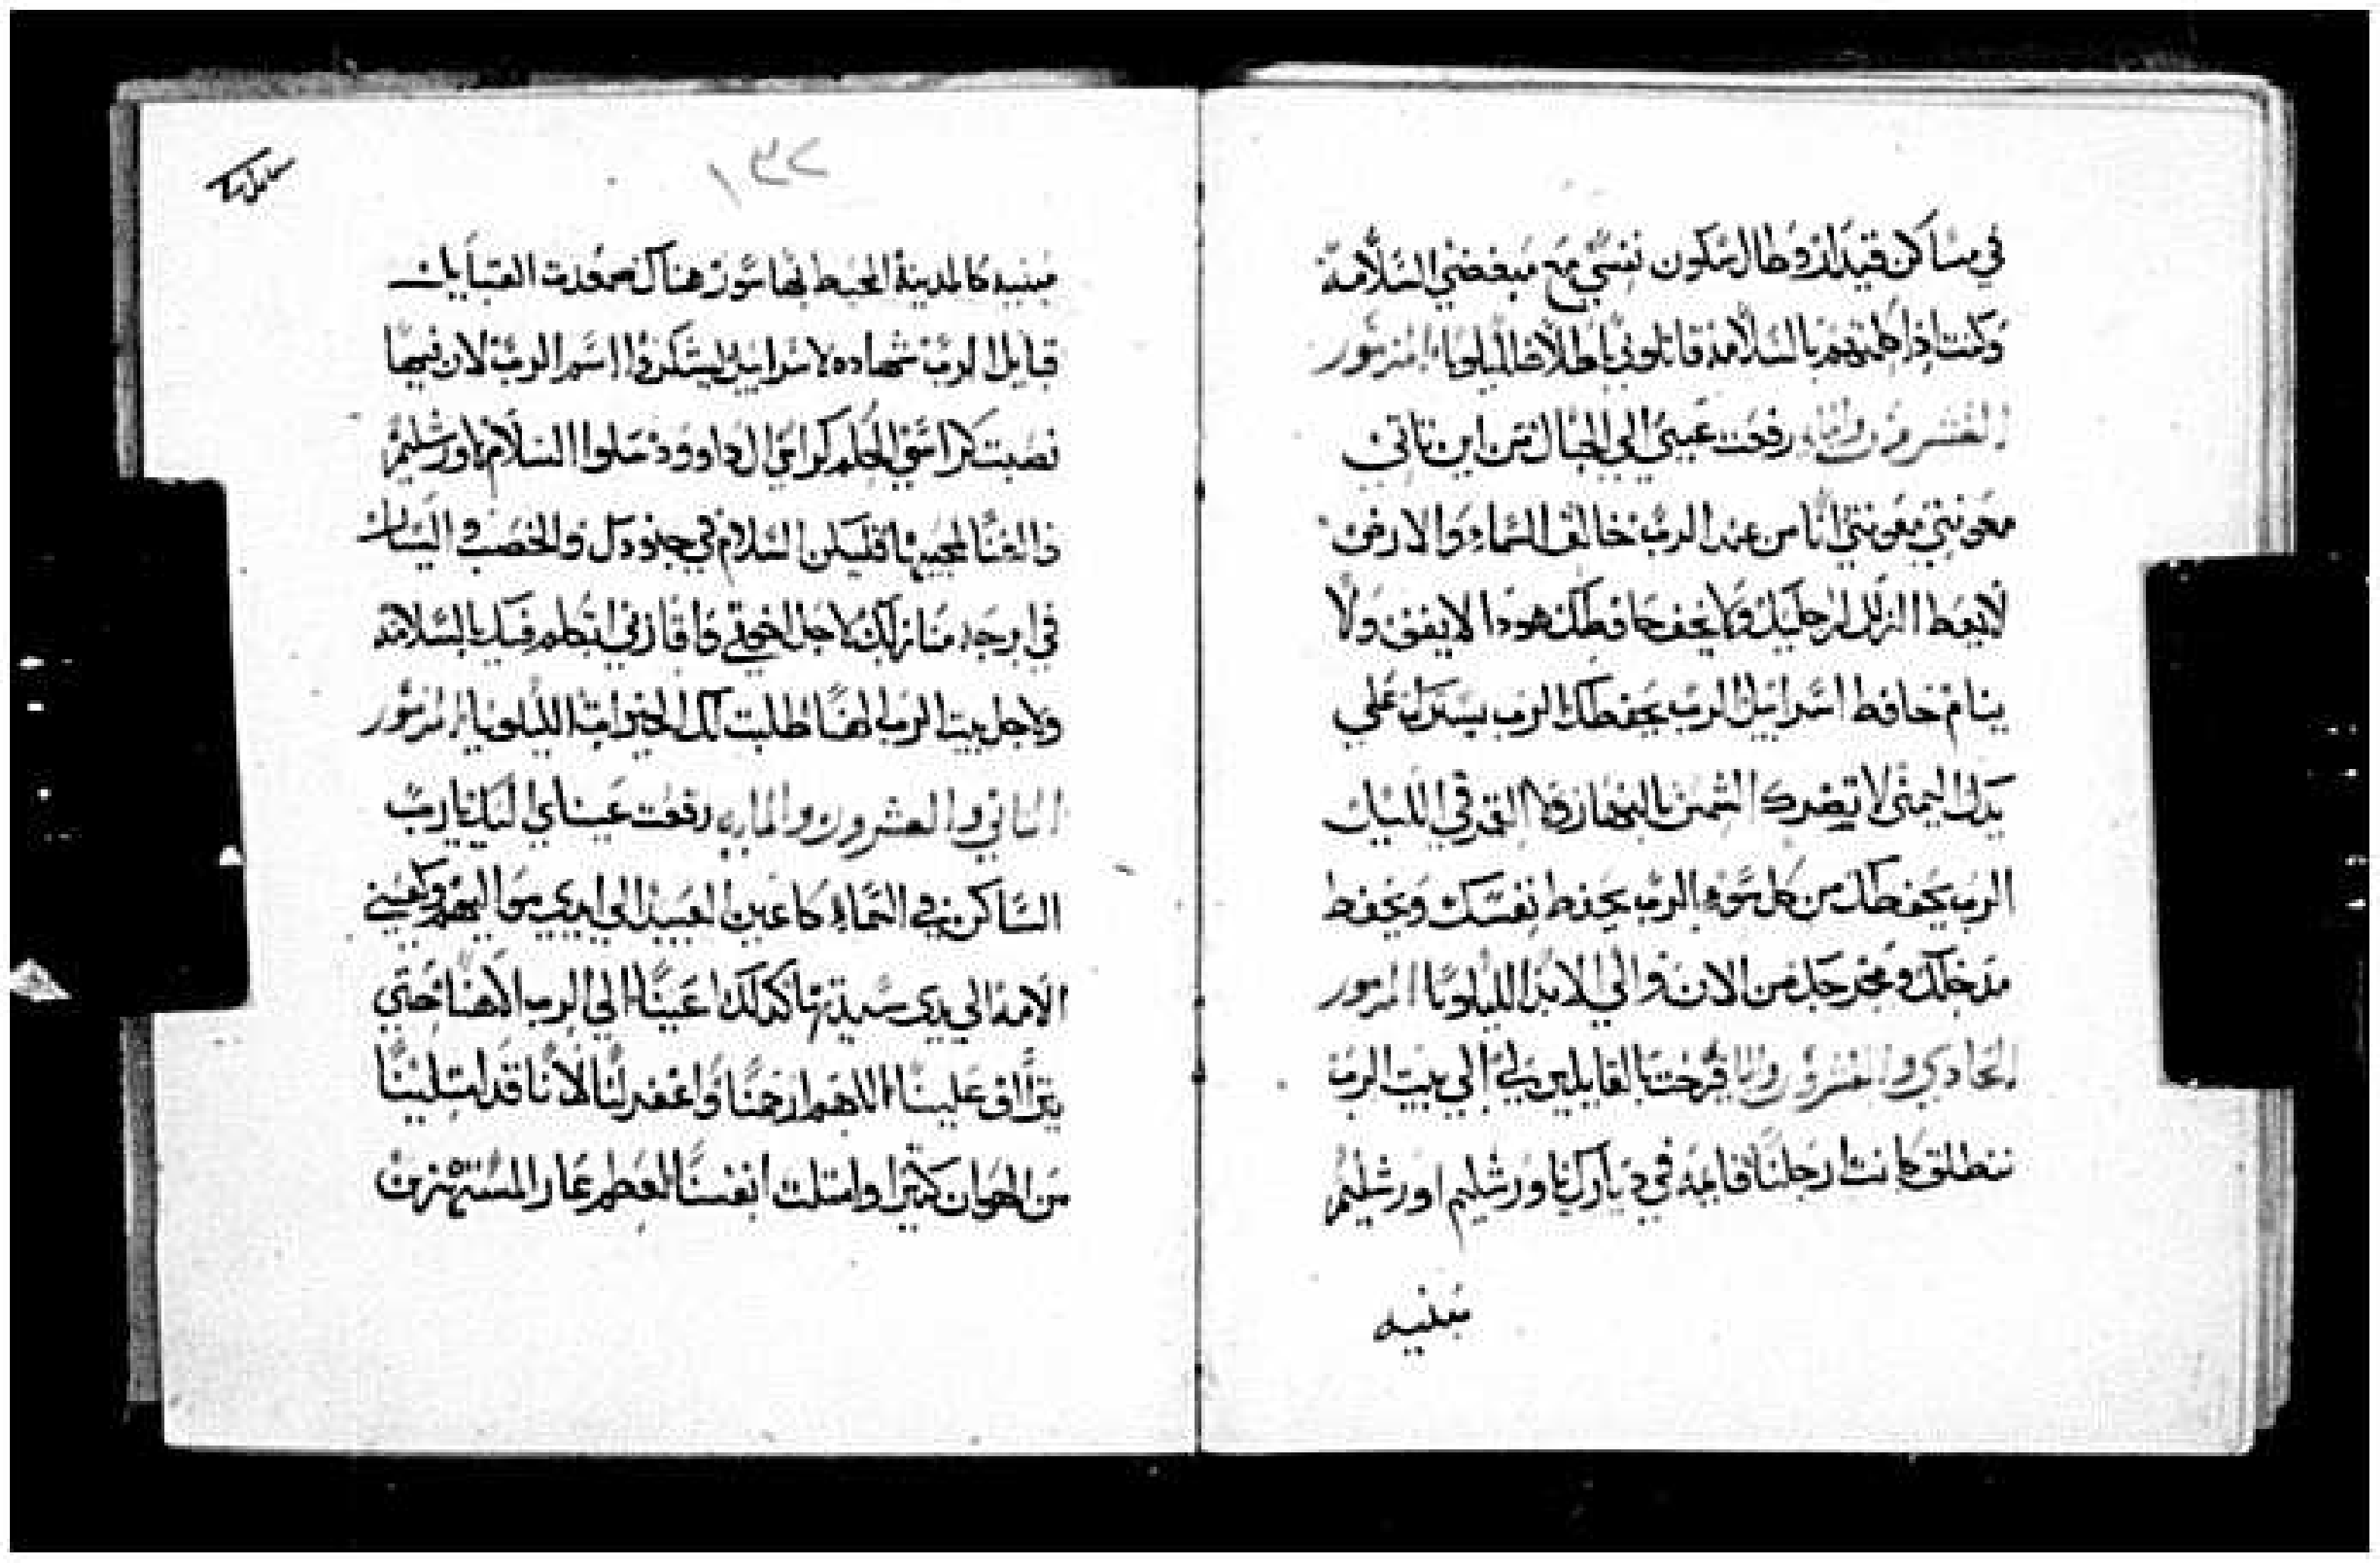 في مساكن قيدار وطال سكون نفسي مع مبغضي السلامة
وكنت اذا كلمتهم بالسلامة قاتلوني باطلا الليلويا المزمور
العشرون والمايه رفعت عيني الي الجبال من اين تاتي
معونتي معونتي انا من عند الرب خالق السماء والارض
لا يعط الزلل لرجليك ولا يغف حافظك هوذا لا يغفى ولا
ينام حافظ اسراييل الرب يحفظك الرب يسترك علي
يدك اليمنى لا تضرك الشمس بالنهار ولا القمر في الليل
الرب يحفظك من كل سوء الرب يحفظ نفسك ويحفظ
مدخلك ومخرجك من الان والي الابد الليلويا المزمور
الحادي والعشرون والمايه فرحت بالقايلين لي الي بيت الرب
ننطلق كانت ارجلنا قايمه في ديارك يا اورشليم اورشليم
مبنيه
١٣٢
مبنيه كالمدينة المحيط بها سور هناك صعدت القبايل
قبايل الرب شهاده لاسراييل ليشكروا اسم الرب لان فيها
نصبت كراسي الحكم كراسي ال داوود سلوا السلام لاورشليم
والغنا لمحبيها فليكن السلام في جنودك والخصب واليسار
في ابرجه منازلك لاجل اخوتي واقاربي اتكلم فيك بالسلامة
ولاجل بيت الرب الهنا طلبت لك الخيرات الليلويا المزمور
الثاني والعشرون والمايه رفعت عيناي اليك يا رب
الساكن في السماء كاعين العبيد الي ايدي مواليهم وكعيني
الامة الي يدي سيدتها كذلك اعيننا الي الرب الاهنا حتي
يتراف علينا اللهم ارحمنا واغفر لنا لاننا قد امتلينا
من الهوان كثيرا وامتلت انفسنا العظم عار المستهزين